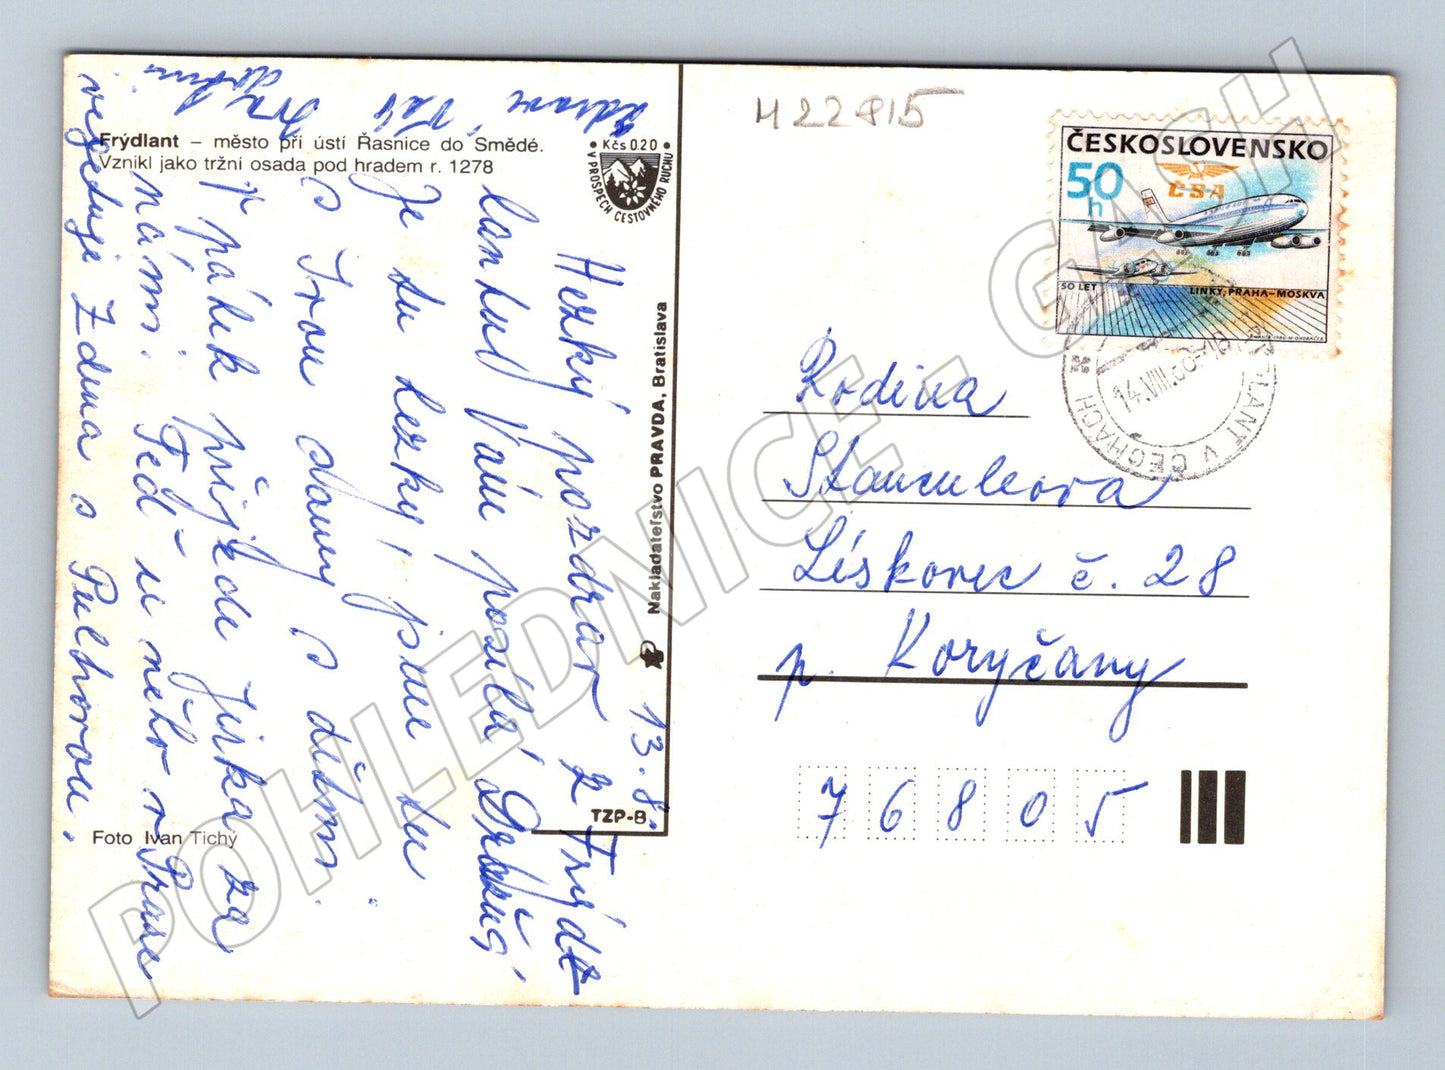 Frýdlant – město při ústí Řasnice do Smědé.
Vznikl jako tržní osada pod hradem r. 1278
• Kčs 0.20 •
V PROSPĚCH CESTOVNÉHO RUCHU
Nakladateľstvo PRAVDA, Bratislava
TZP-B
Foto Ivan Tichý
13. 8.
Hezký pozdrav z Frýdt
lantu Vám posílá
Je tu hezky, jsme tu
s Irou samy s dětmi.
V pátek přijede Jirka za
námi. Teď si něho v Praze
z dna s
Zdraví Vás
M22815
ČESKOSLOVENSKO
50 h
ČSA
50 LET
LINKY, PRAHA–MOSKVA
FRÝDLANT V ČECHÁCH
14.VIII.
Rodina
Stanculeova
Lískovec č. 28
p. Koryčany
76805
POHLEDNICE - GASH